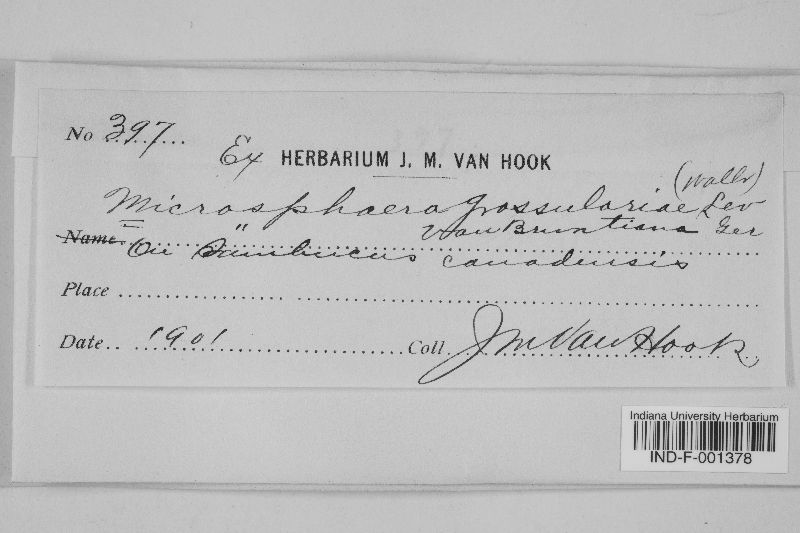 No 397
Ex HERBARIUM J. M. VAN HOOK
(Wallr)
Microsphaera Grossulariae Lev
= " Van Bruntiana Ger
Name On Sambucus canadensis
Place
Date 1901 Coll. J M Van Hook
Indiana University Herbarium
IND-F-001378